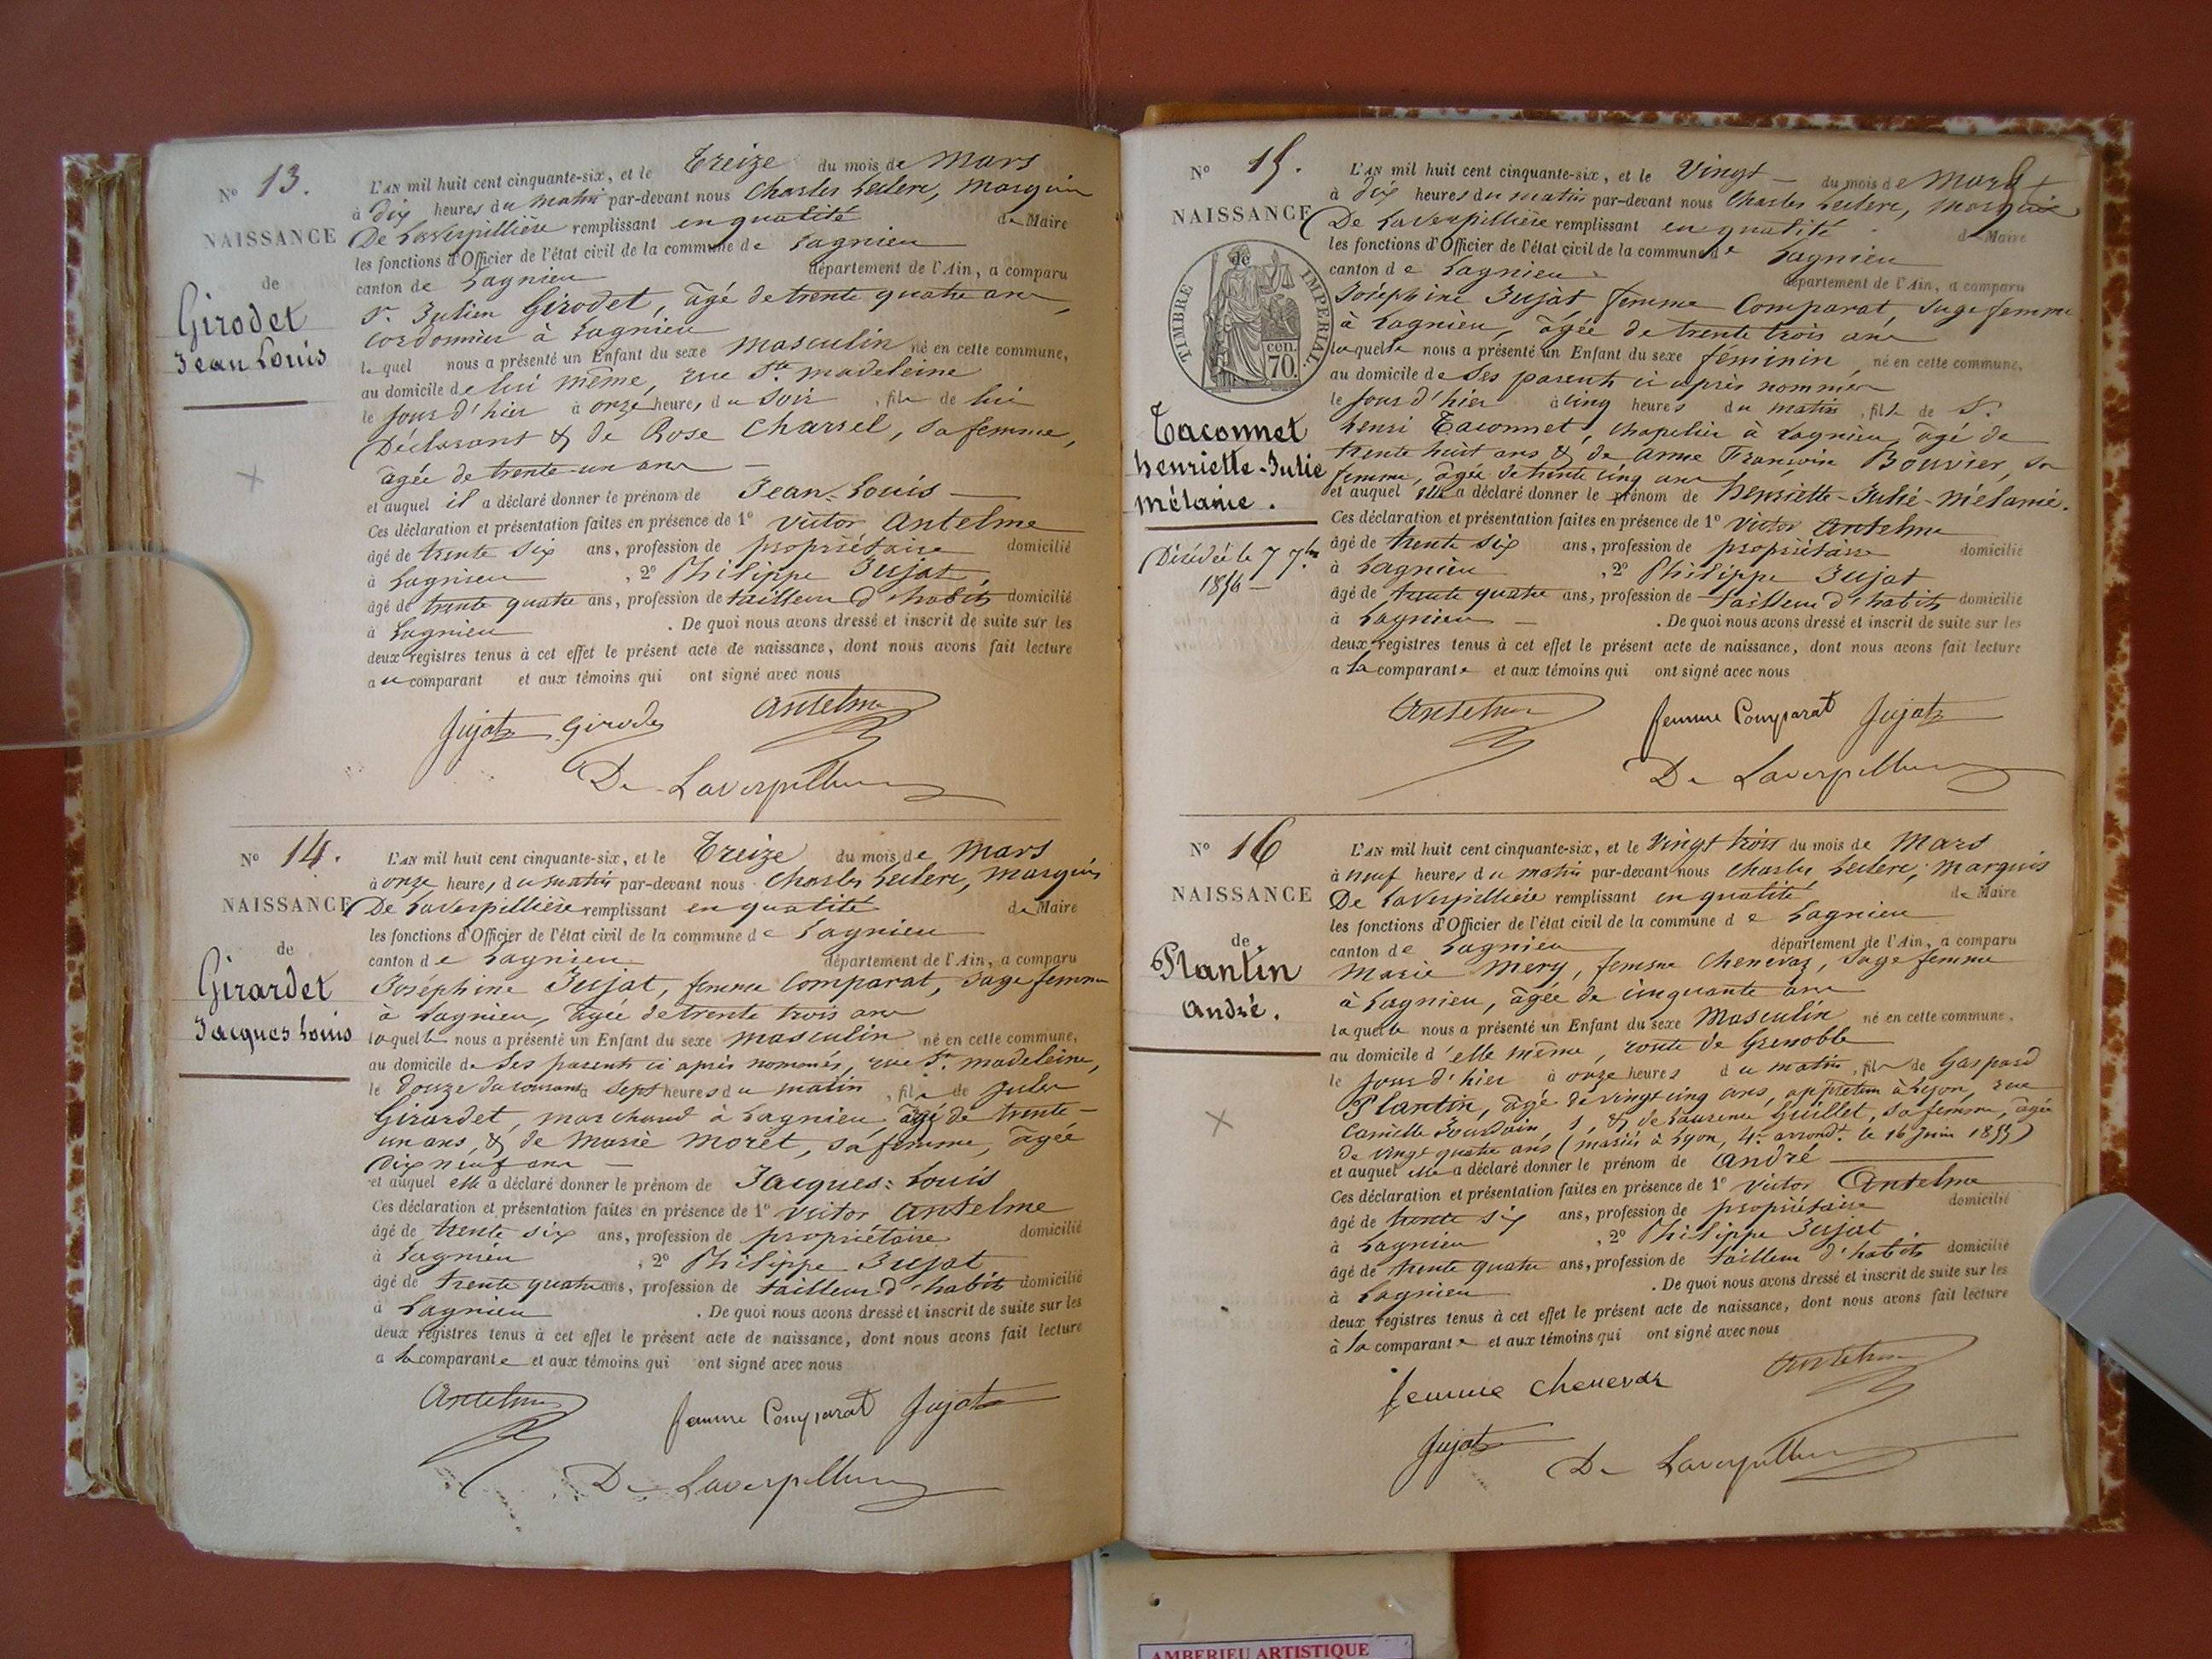 N° 13.
NAISSANCE
de
Girodet
Jean Louis
L'AN mil huit cent cinquante-six, et le Treize du mois de Mars
à Dix heures du matin par-devant nous Charles Leclerc, Marquis
De Laverpillière remplissant en qualité de Maire
les fonctions d'Officier de l'état civil de la commune de Lagnieu
canton de Lagnieu département de l'Ain, a comparu
Sr. Julien Girodet, âgé de trente quatre ans,
Cordonnier à Lagnieu
lequel nous a présenté un Enfant du sexe masculin né en cette commune,
au domicile de lui même, rue Ste. madeleine
le Jour d'hier à onze heures du Soir, fils de lui
Déclarant & de Rose Charvel, sa femme,
âgée de trente-un ans
et auquel il a déclaré donner le prénom de Jean-Louis
Ces déclaration et présentation faites en présence de 1° Victor Antelme
âgé de trente six ans, profession de propriétaire domicilié
à Lagnieu, 2° Philippe Jujat,
âgé de trente quatre ans, profession de tailleur d'habits domicilié
à Lagnieu. De quoi nous avons dressé et inscrit de suite sur les
deux registres tenus à cet effet le présent acte de naissance, dont nous avons fait lecture
au comparant et aux témoins qui ont signé avec nous
Jujat Girodet Antelme
De Laverpillière
N° 14.
NAISSANCE
de
Girardet
Jacques Louis
L'AN mil huit cent cinquante-six, et le Treize du mois de Mars
à onze heures du matin par-devant nous Charles Leclerc, Marquis
De Laverpillière remplissant en qualité de Maire
les fonctions d'Officier de l'état civil de la commune de Lagnieu
canton de Lagnieu département de l'Ain, a comparu
Joséphine Jujat, femme Comparat, Sage femme
à Lagnieu, âgée de trente trois ans
laquelle nous a présenté un Enfant du sexe masculin né en cette commune,
au domicile de ses parents ci après nommés, rue Ste. madeleine,
le Douze du courant à Sept heures du matin, fils de Jules
Girardet, marchand à Lagnieu, âgé de trente-
un ans, & de Marie Moret, sa femme, âgée
Dix neuf ans
et auquel elle a déclaré donner le prénom de Jacques-Louis
Ces déclaration et présentation faites en présence de 1° Victor Antelme
âgé de trente six ans, profession de propriétaire domicilié
à Lagnieu, 2° Philippe Jujat
âgé de trente quatre ans, profession de tailleur d'habits domicilié
à Lagnieu. De quoi nous avons dressé et inscrit de suite sur les
deux registres tenus à cet effet le présent acte de naissance, dont nous avons fait lecture
a la comparante et aux témoins qui ont signé avec nous
Antelme femme Comparat Jujat
De Laverpillière
N° 15.
NAISSANCE
de
TIMBRE IMPERIAL
70 cen.
Taconnet
henriette-Julie
Mélanie.
Décédée le 7 7bre
1856
L'AN mil huit cent cinquante-six, et le Vingt du mois de Mars
à Dix heures du matin par-devant nous Charles Leclerc, Marquis
De Laverpillière remplissant en qualité de Maire
les fonctions d'Officier de l'état civil de la commune de Lagnieu
canton de Lagnieu département de l'Ain, a comparu
Joséphine Jujat, femme Comparat, Sage femme
à Lagnieu, âgée de trente trois ans
laquelle nous a présenté un Enfant du sexe féminin, né en cette commune,
au domicile de ses parents ci après nommés
le Jour d'hier à cinq heures du matin, fille de Sr.
henri Taconnet, Chapelier à Lagnieu, âgé de
trente huit ans & de Anne Françoise Bouvier, sa
femme, âgée de trente cinq ans
et auquel elle a déclaré donner le prénom de henriette-Julie-Mélanie.
Ces déclaration et présentation faites en présence de 1° Victor Antelme
âgé de trente six ans, profession de propriétaire domicilié
à Lagnieu, 2° Philippe Jujat
âgé de trente quatre ans, profession de tailleur d'habits domicilié
à Lagnieu. De quoi nous avons dressé et inscrit de suite sur les
deux registres tenus à cet effet le présent acte de naissance, dont nous avons fait lecture
a la comparante et aux témoins qui ont signé avec nous
Antelme femme Comparat Jujat
De Laverpillière
N° 16
NAISSANCE
de
Plantin
André.
L'AN mil huit cent cinquante-six, et le Vingt trois du mois de Mars
à neuf heures du matin par-devant nous Charles Leclerc, Marquis
De Laverpillière remplissant en qualité de Maire
les fonctions d'Officier de l'état civil de la commune de Lagnieu
canton de Lagnieu département de l'Ain, a comparu
Marie Mery, femme Chenevaz, Sage femme
à Lagnieu, âgée de cinquante ans
laquelle nous a présenté un Enfant du sexe Masculin né en cette commune,
au domicile d'elle même, route de Grenoble
le Jour d'hier à onze heures du matin, fils de Gaspard
Plantin, âgé de vingt cinq ans, apprêteur à Lyon, rue
Camille Jourdain, 1, & de Laurence Guillet, sa femme, âgée
de vingt quatre ans (mariés à Lyon, 4e. arrondt. le 16 Juin 1855)
et auquel elle a déclaré donner le prénom de André
Ces déclaration et présentation faites en présence de 1° Victor Antelme
âgé de trente six ans, profession de propriétaire domicilié
à Lagnieu, 2° Philippe Jujat
âgé de trente quatre ans, profession de tailleur d'habits domicilié
à Lagnieu. De quoi nous avons dressé et inscrit de suite sur les
deux registres tenus à cet effet le présent acte de naissance, dont nous avons fait lecture
à la comparante et aux témoins qui ont signé avec nous
femme Chenevaz Antelme
Jujat De Laverpillière
AMBERIEU ARTISTIQUE